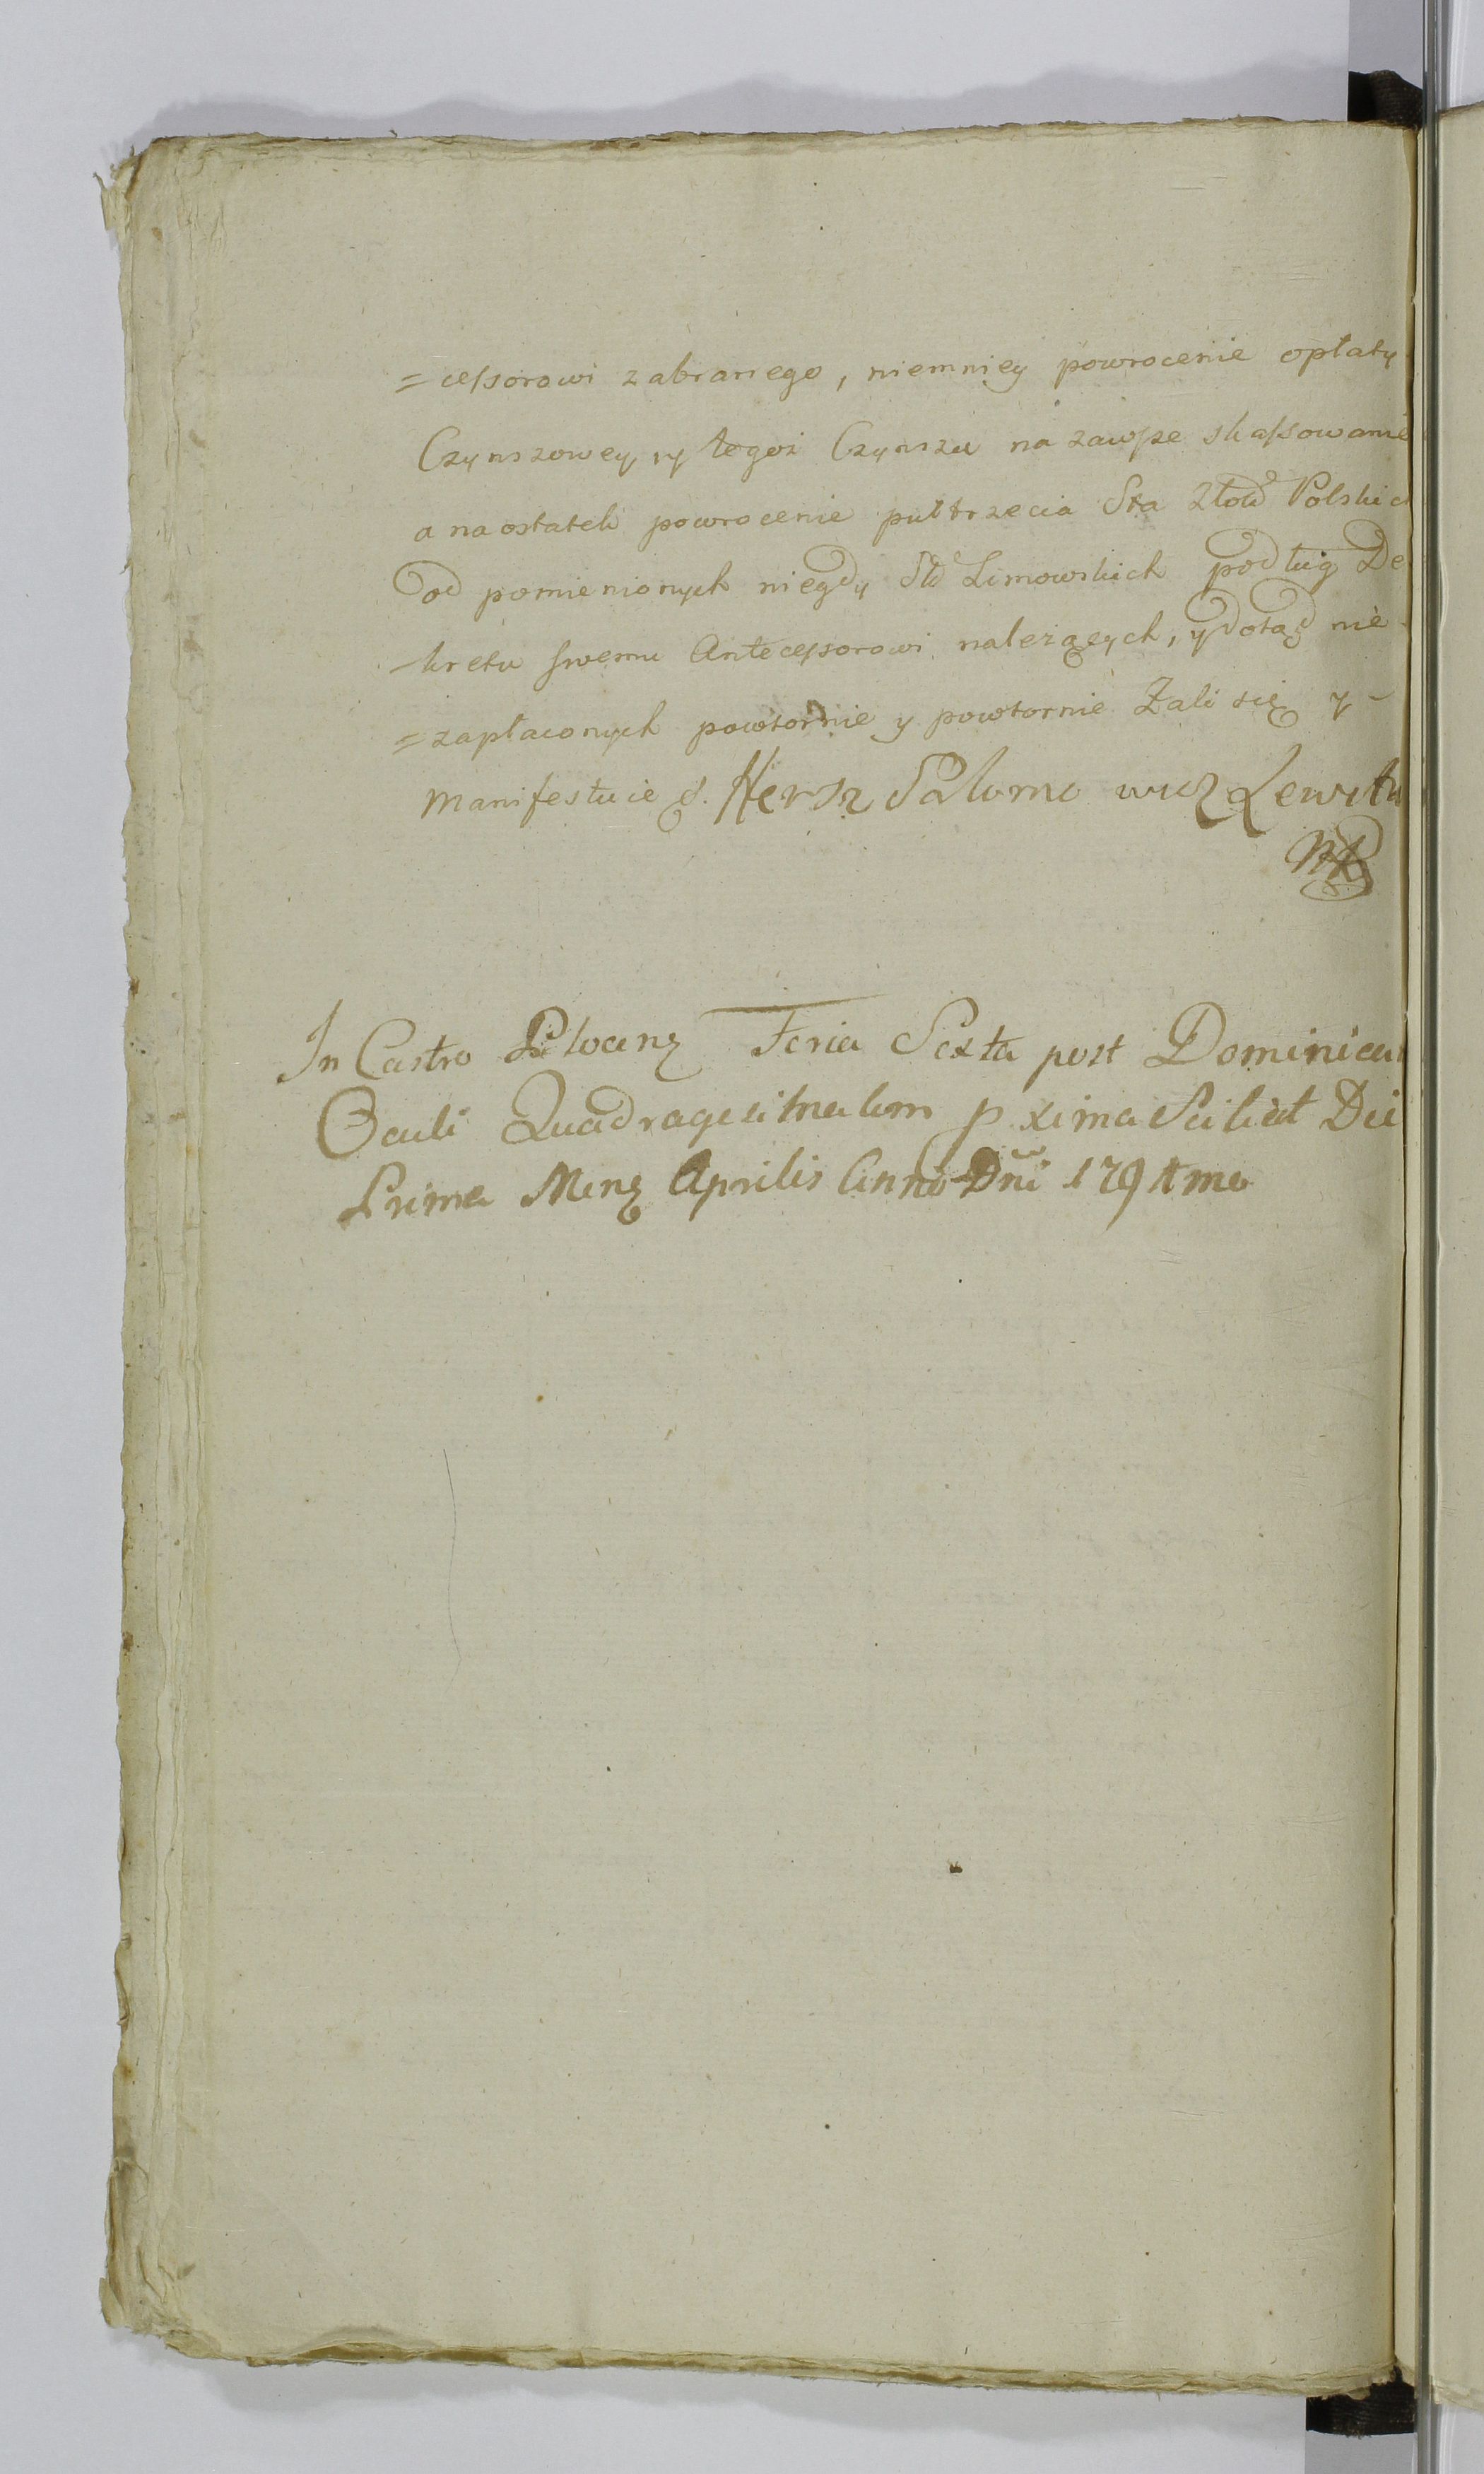 =cessorowi zabranego, niemniey powrocenie opłaty
Czynszowey, y tegoż Czynszu na zawsze skassowanie
a naostatek powrocenie pułtrzecia Sta Złotd Polskich
od pomienionych niegdy Sld Limowskich podług De
-kretu swemu Antecessorowi należących, y dotąd nie-
=zapłaconych powtornie y powtornie Żali się y-
Manifestuie S. Hersz Salomo wicz Lewita
In Castro Plocenz Feria Sexta post Dominicam
Oculi Quadragesimalem pxima Scilicet Die
Prima Menz Aprilis Anno Dni 1791mo